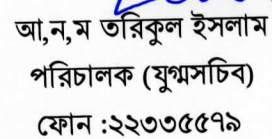 আ,ন,ম তরিকুল ইসলাম
পরিচালক (যুগ্মসচিব)
ফোন :২২৩৩৫৫৭৯